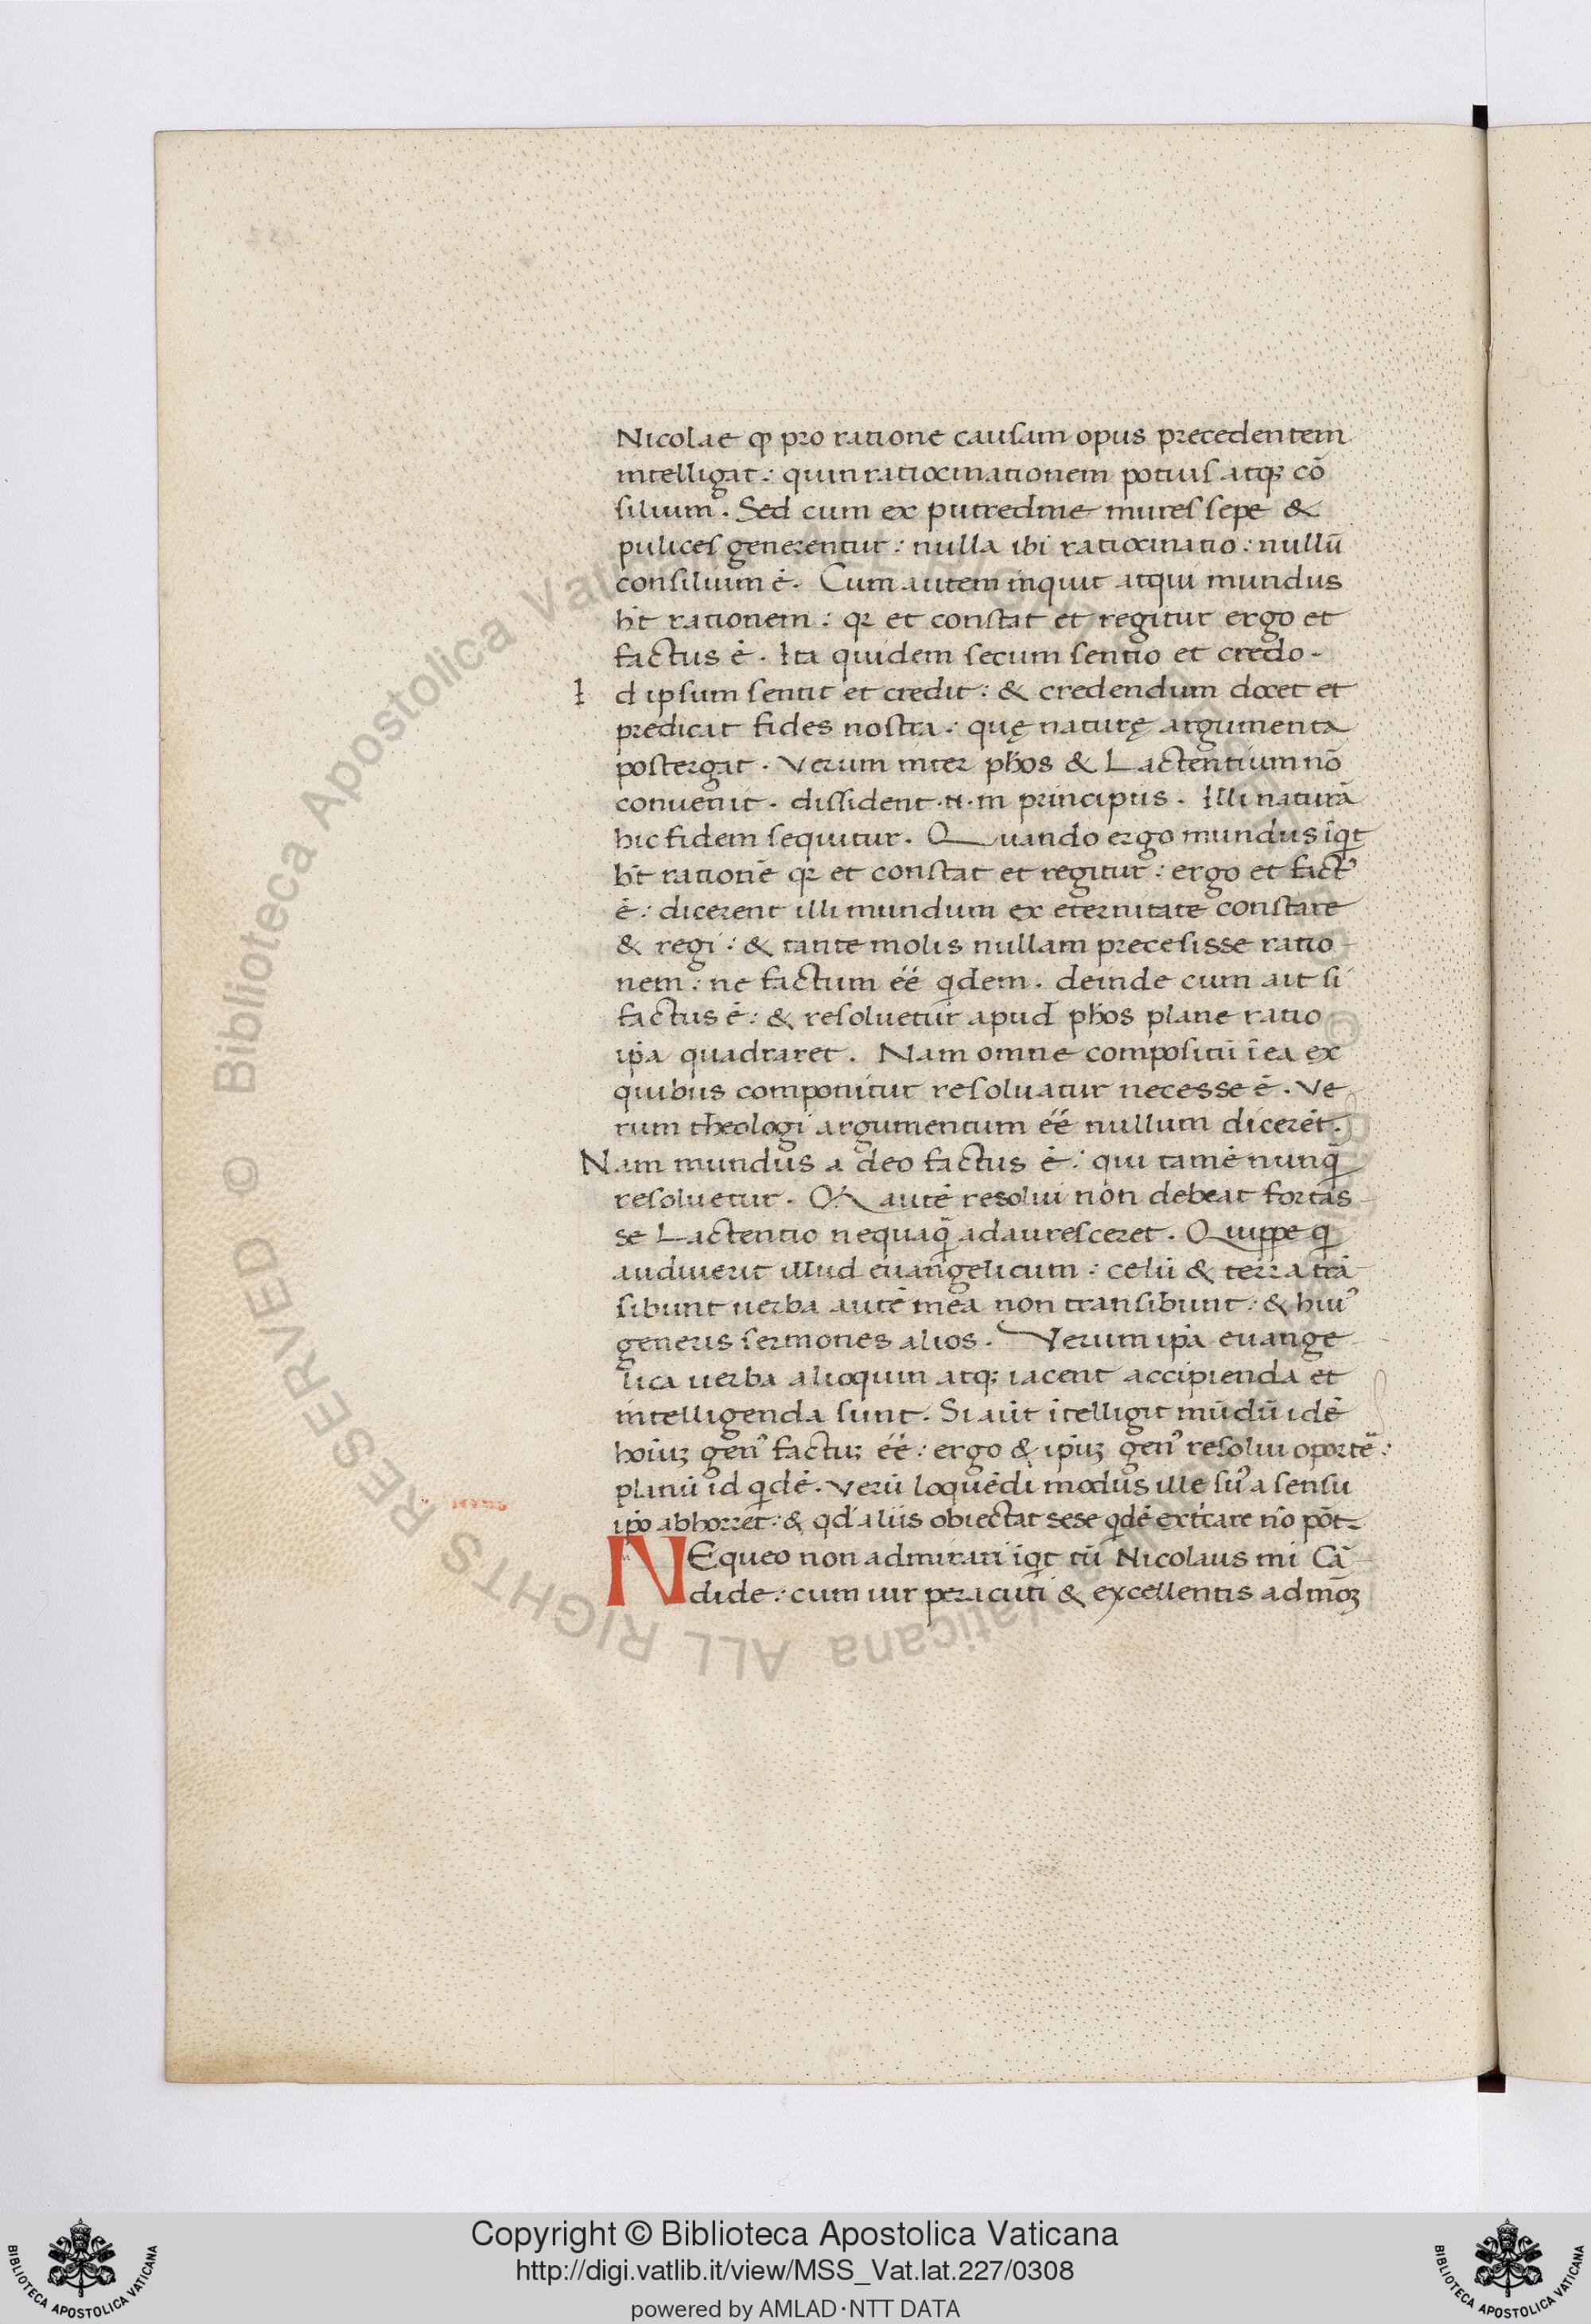 Nicolae ꝙ pro ratione causam opus precedentem
intelligat: quin ratiocinationem potius atqꝫ cō
silium. Sed cum ex putredine mures sepe &
pulices generentur: nulla ibi ratiocinatio: nullū
consilium ē. Cum autem inquit atqui mundus
hт̄ rationem: qꝛ et constat et regitur ergo et
factus ē. Ita quidem secum sentio et credo.
Id ipsum sentit et credit: & credendum docet et
predicat fides nostra: quę naturę argumenta
postergat. Verum inter pħos & Lactentium nō
conuenit. dissident .n. in principiis. Illi naturā
hic fidem sequitur. Quando ergo mundus īqt
ht̄ rationē qꝛ et constat et regitur: ergo et fact᾽
ē: dicerent illi mundum ex eternitate constare
& regi: & tante molis nullam precesisse ratio
nem: ne factum ēē qdem. deinde cum ait si
factus ē: & resoluetur apud pħos plane ratio
ip̄a quadraret. Nam omne compositū ī ea ex
quibus componitur resoluatur necesse ē. Ve
rum theologi argumentum ēē nullum dicerēt.
Nam mundus a deo factus ē: qui tamē nunq̄
resoluetur. Qꝛ autē resolui non debeat fortas
se Lactentio nequaq̄ adauresceret. Quippe q
audiuerit illud euangelicum: celū & terra trā
sibunt uerba autē mea non transibunt: & hui᾽
generis sermones alios. Verum ip̄a euange
lica uerba alioquin atqꝫ iacent accipienda et
intelligenda sunt. Si aūt ītelligit mūdū idē
hoīuꝫ gen᾽ factuꝫ ēē: ergo & ipīuꝫ gen᾽ resolui oportē:
planū id qdē. Verū loquēdi modus ille su᾽ a sensu
ip̄o abhorret: & qd̄ aliis obiectat sese qdē extricare nō pōt.
NEqueo non admirari īqt tū Nicolaus mi Cā
dide: cum uir peracuti & excellentis admōꝫ
Copyright © Biblioteca Apostolica Vaticana
http://digi.vatlib.it/view/MSS_Vat.lat.227/0308
powered by AMLAD·NTT DATA
BIBLIOTECA APOSTOLICA VATICANA
BIBLIOTECA APOSTOLICA VATICANA
© Biblioteca Apostolica Vaticana ALL RIGHTS RESERVED